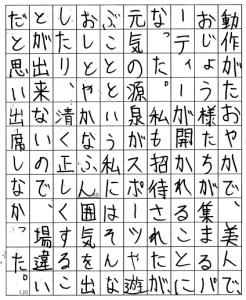 動作がたおやかで、美人で、
おじょう様たちが、集まるパ
ーティーが開かれることに
なった。私も招待されたが、
元気の源泉がスポーツや遊
ぶこととかな私には、そんな
おしとやかなふん囲気を出
したり、清く正しくするこ
とが出来ないので、場違い
だと思い出席しなかった。
120